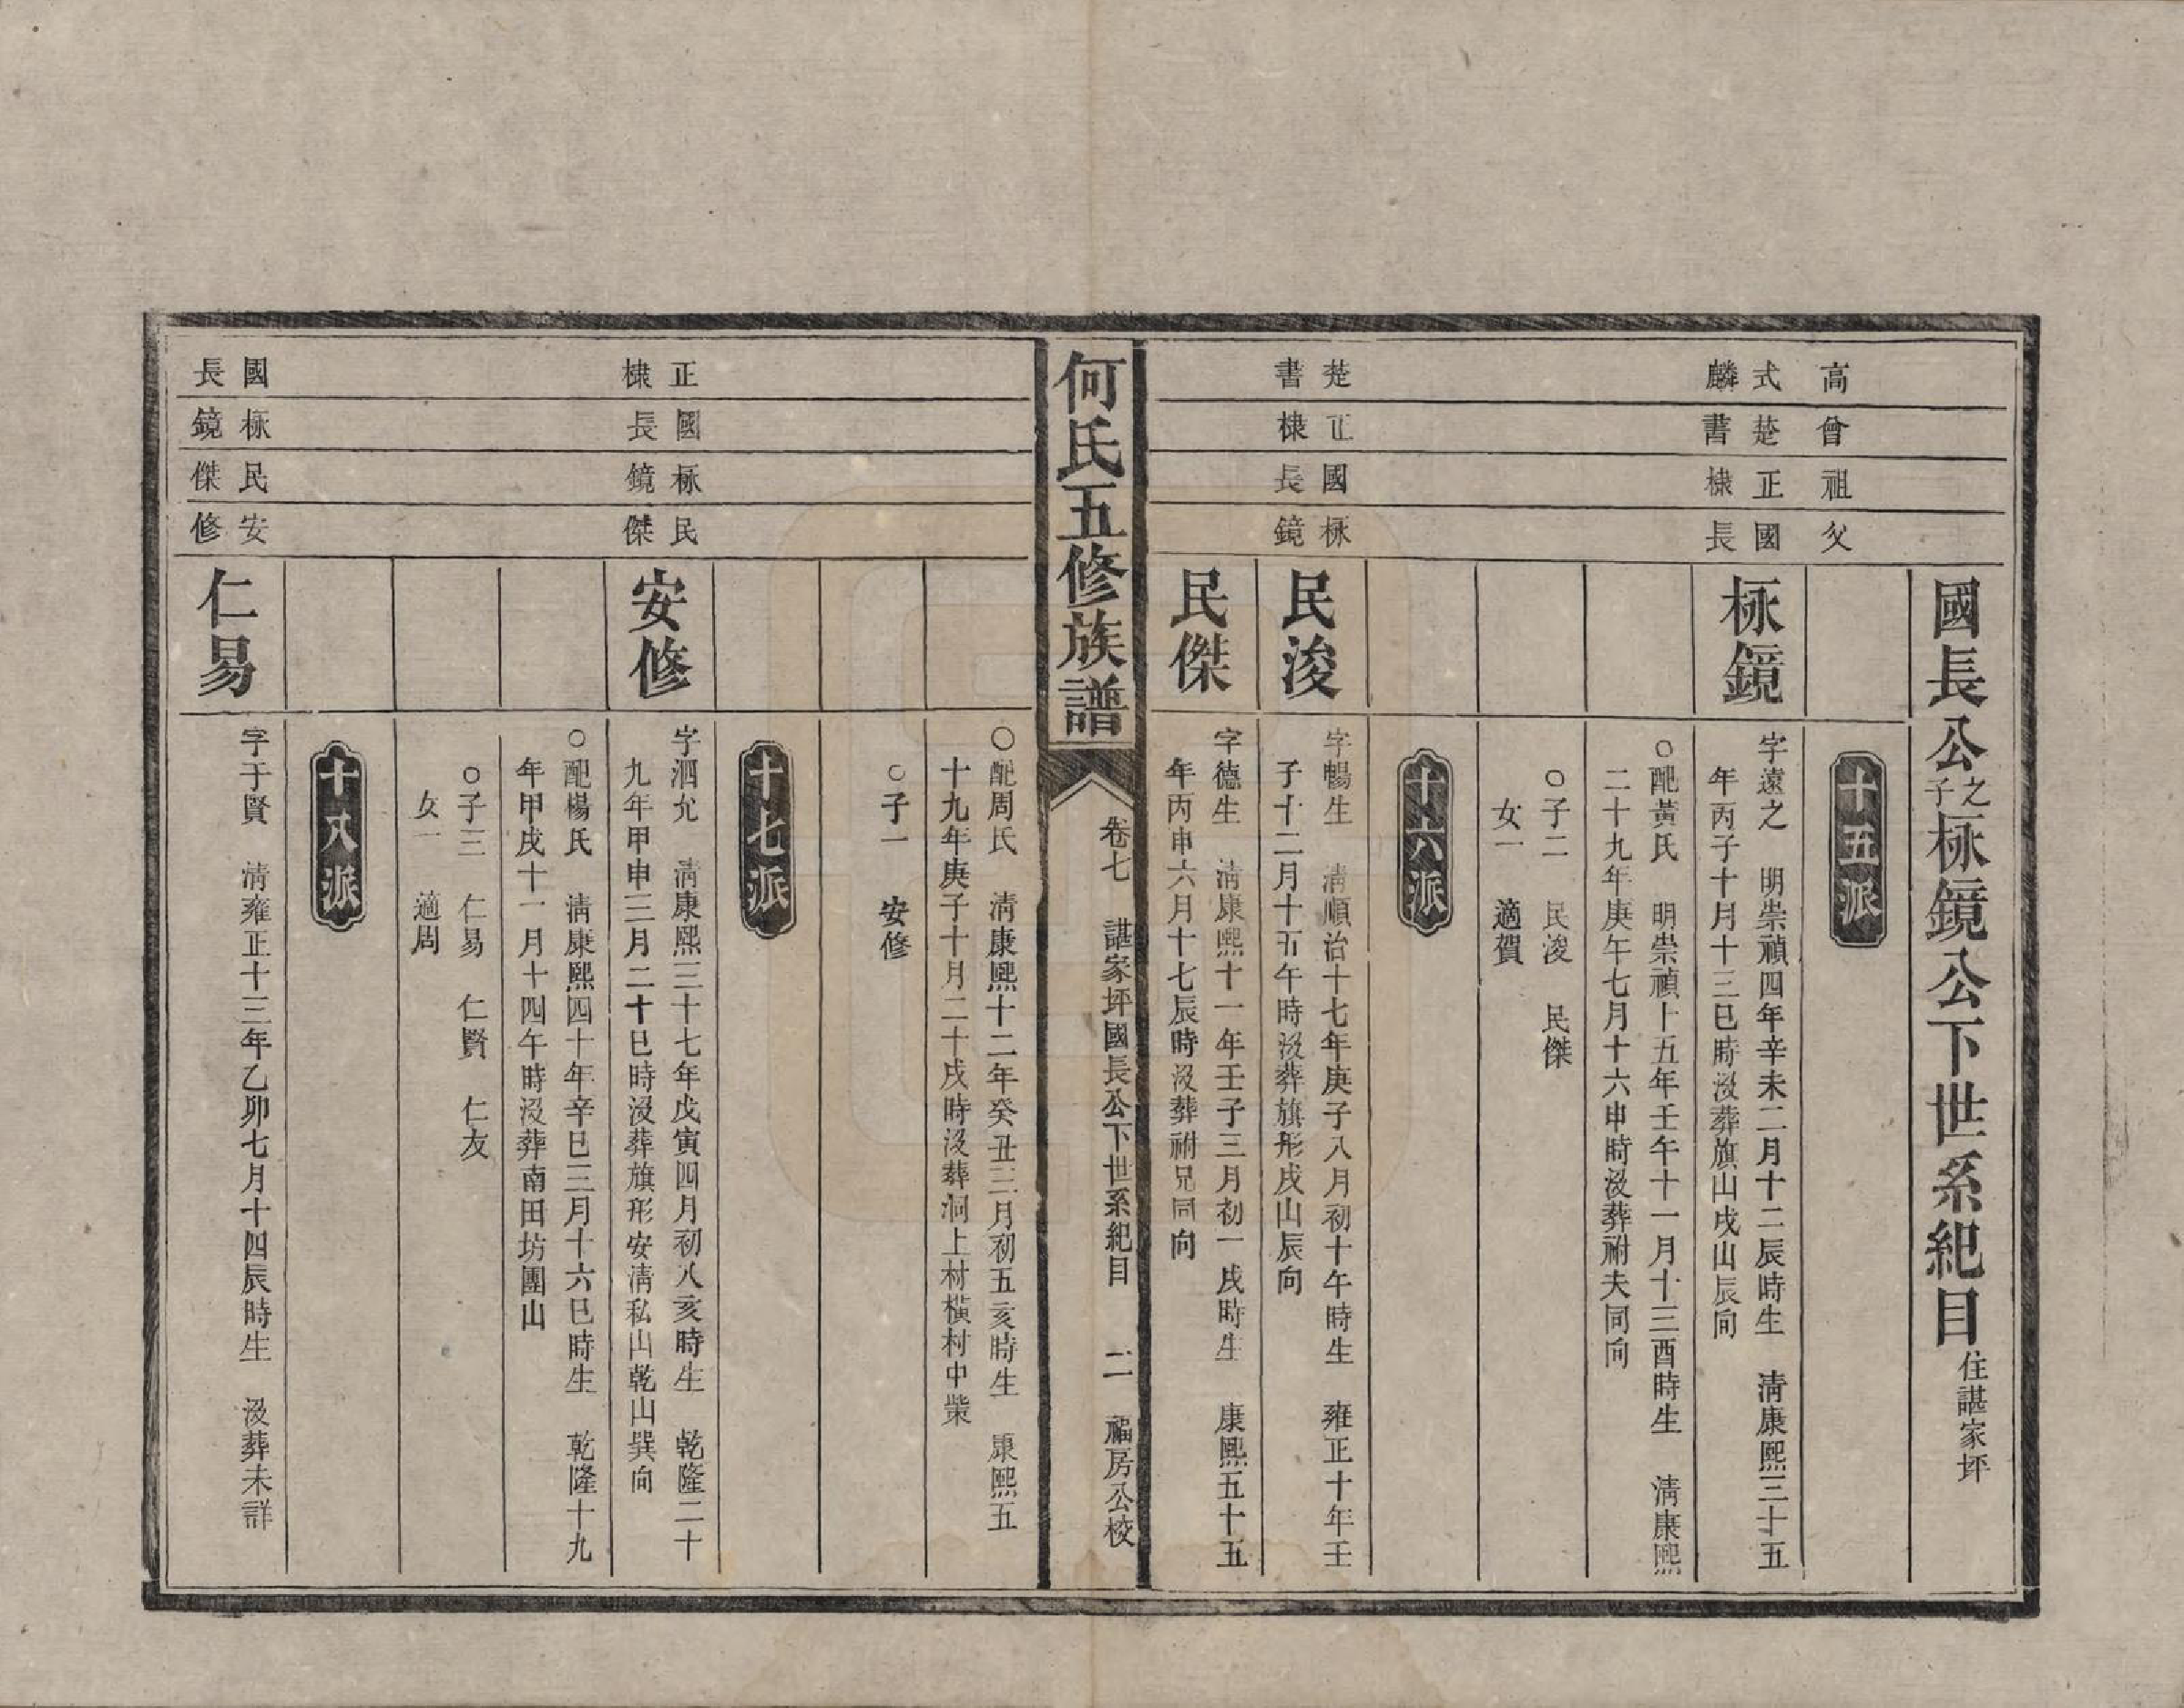 國長公之子柡鏡公下世系紀目住諶家坪
高
曾
祖
父
十五派
式麟
楚書
正棣
國長
柡鏡
字遠之　明崇禎四年辛未二月十二辰時生　清康熙三十五
年丙子十月十三巳時沒葬旗山戌山辰向
○配黃氏　明崇禎十五年壬午十一月十三酉時生　清康熙
二十九年庚午七月十六申時沒葬祔夫同向
○子二　民浚　民傑
女一　適賀
十六派
楚書
正棣
國長
柡鏡
民浚
字暢生　清順治十七年庚子八月初十午時生　雍正十年壬
子十二月十五午時沒葬旗形戌山辰向
民傑
字德生　清康熙十一年壬子三月初一戌時生　康熙五十五
年丙申六月十七辰時沒葬祔兄同向
何氏五修族譜
卷七　諶家坪國長公下世系紀目　二　福房公校
○配周氏　清康熙十二年癸丑三月初五亥時生　康熙五
十九年庚子十月二十戌時沒葬洞上村橫村中柴
○子一　安修
十七派
正棣
國長
柡鏡
民傑
安修
字泗允　清康熙三十七年戊寅四月初八亥時生　乾隆二十
九年甲申三月二十巳時沒葬旗形安清私山乾山巽向
○配楊氏　清康熙四十年辛巳三月十六巳時生　乾隆十九
年甲戌十一月十四午時沒葬南田坊團山
○子三　仁易　仁賢　仁友
女一　適周
十八派
國長
柡鏡
民傑
安修
仁易
字于賢　清雍正十三年乙卯七月十四辰時生　沒葬未詳